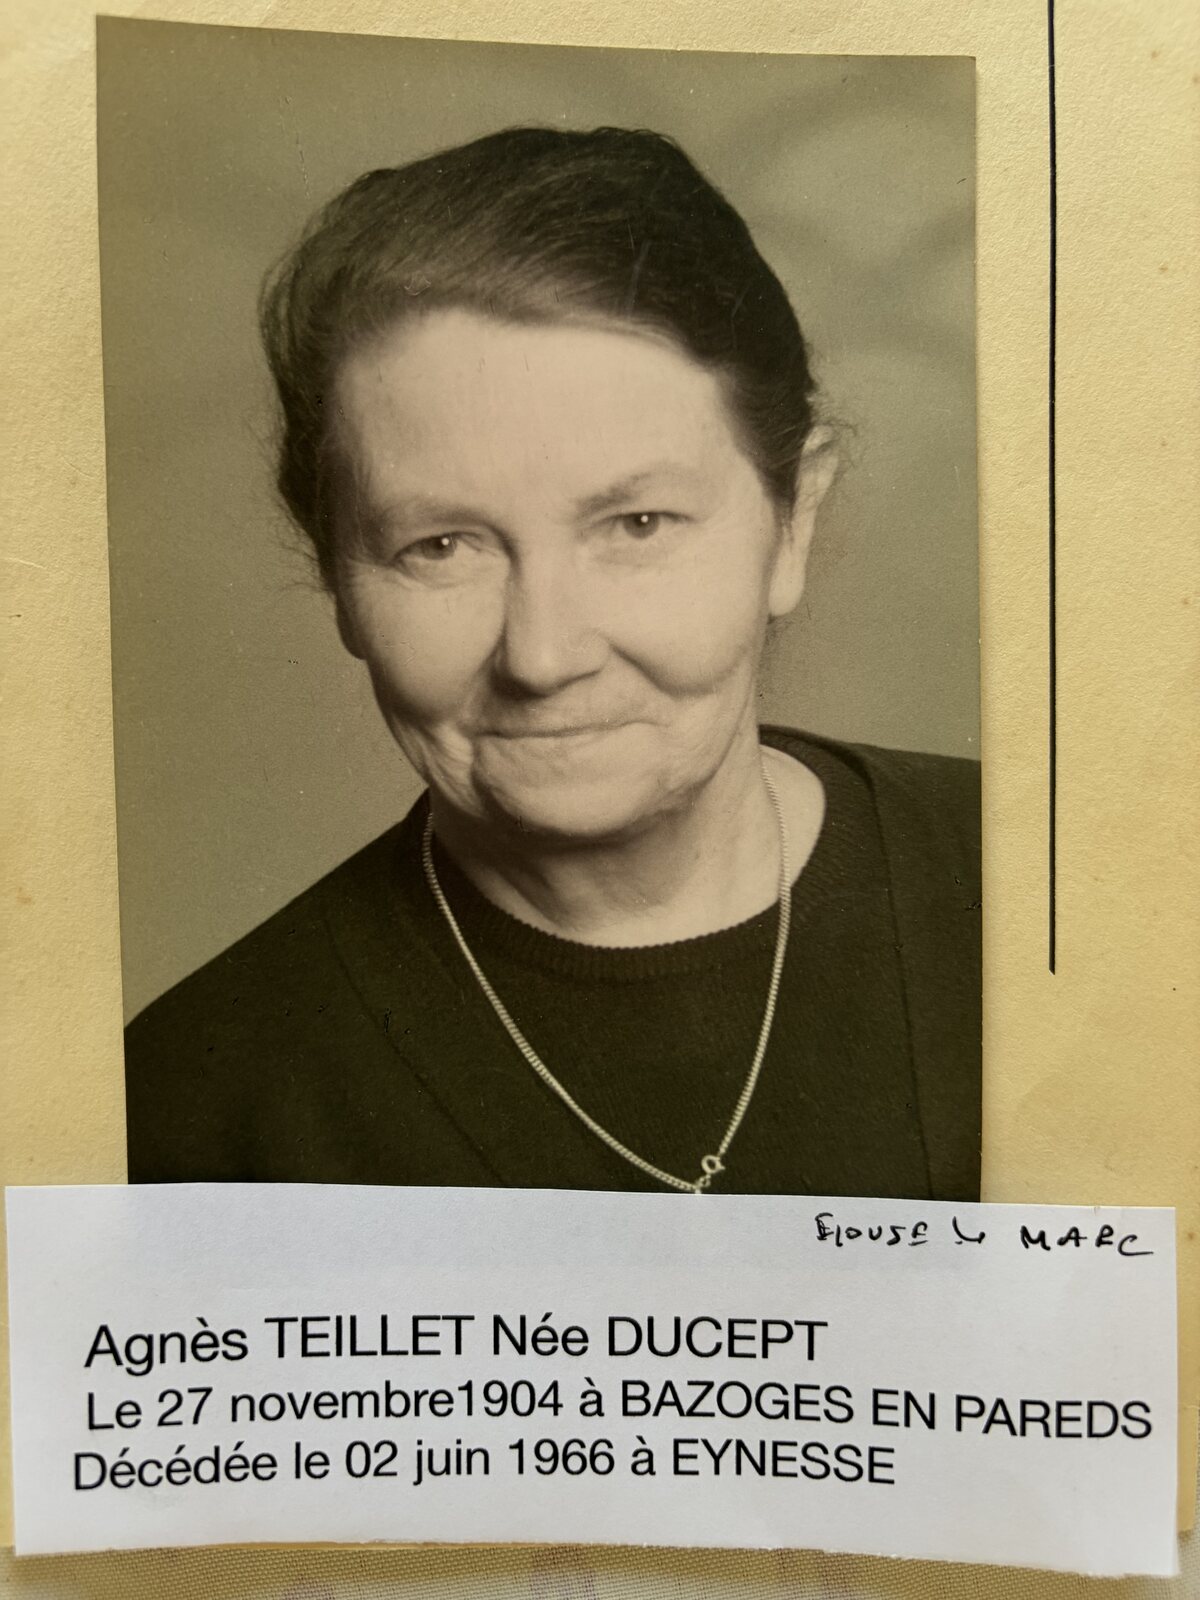 MARC
Agnès TEILLET Née DUCEPT
Le 27 novembre1904 à BAZOGES EN PAREDS
Décédée le 02 juin 1966 à EYNESSE